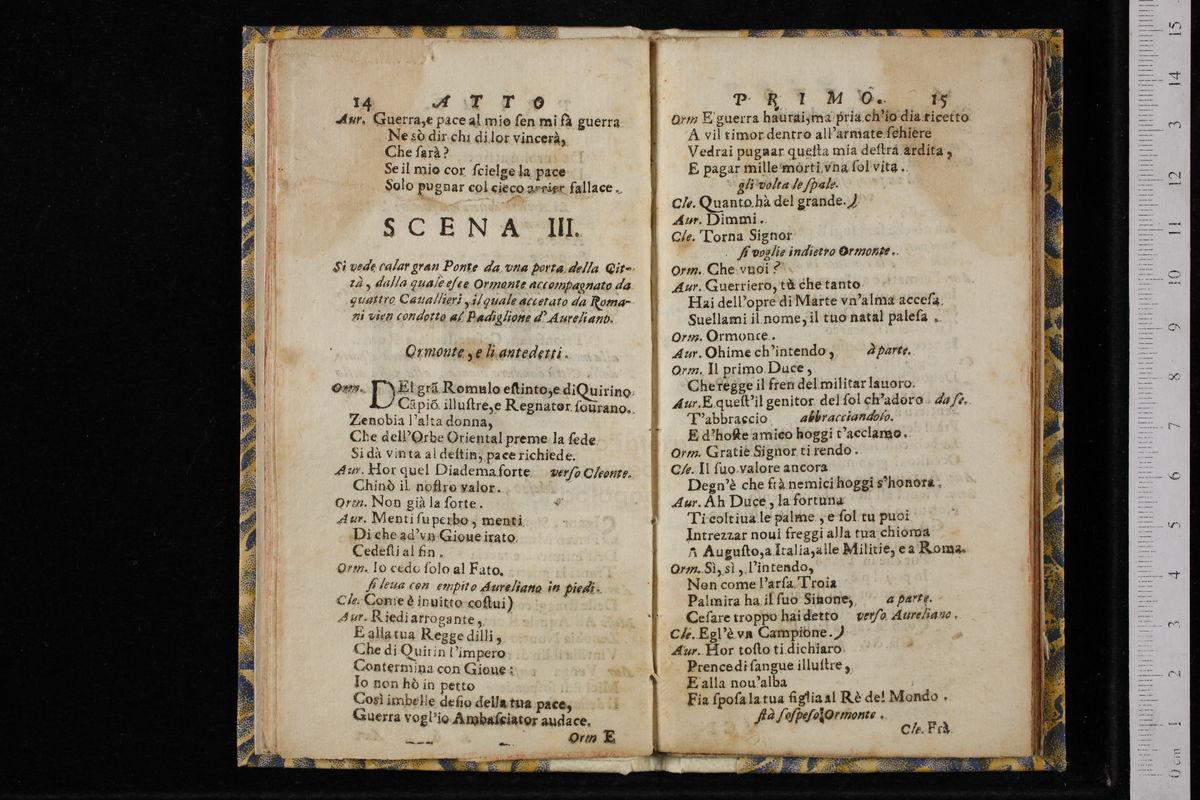 14 ATTO
Aur. Guerra, e pace al mio ſen mi fà guerra
Ne sò dir chi di lor vincerà,
Che farà?
Se il mio cor ſcielge la pace
Solo pugnar col cieco fallace.
SCENA III.
Si vede calar gran Ponte da vna porta della Cit-
tà, dalla quale eſce Ormonte accompagnato da
quattro Cauallieri, il quale accetato da Roma-
ni vien condotto al Padiglione d'Aureliano.
Ormonte, e li antedetti.
Orm. DEl grã Romulo eſtinto, e di Quirino
Cãpiõ illuſtre, e Regnator ſourano.
Zenobia l'alta donna,
Che dell'Orbe Oriental preme la ſede
Si dà vinta al deſtin, pace richiede.
Aur. Hor quel Diadema forte verſo Cleonte.
Chinò il noſtro valor.
Orm. Non già la ſorte.
Aur. Menti ſuperbo, menti
Di che ad'vn Gioue irato
Cedeſti al fin.
Orm. Io cedo ſolo al Fato.
ſi leua con empito Aureliano in piedi.
Cle. Come è inuitto coſtui)
Aur. Riedi arrogante,
E alla tua Regge dilli,
Che di Quirin l'impero
Contermina con Gioue:
Io non hò in petto
Così imbelle deſio della tua pace,
Guerra vogl'io Ambaſciator audace.
Orm E
PRIMO. 15
Orm E guerra haurai, ma pria ch'io dia ricetto
A vil timor dentro all'armate ſchiere
Vedrai pugnar queſta mia deſtra ardita,
E pagar mille morti vna ſol vita.
gli volta le ſpale.
Cle. Quanto hà del grande.)
Aur. Dimmi.
Cle. Torna Signor
ſi voglie indietro Ormonte.
Orm. Che vuoi?
Aur. Guerriero, tù che tanto
Hai dell'opre di Marte vn'alma acceſa
Suellami il nome, il tuo natal paleſa.
Orm. Ormonte.
Aur. Ohime ch'intendo, à parte.
Orm. Il primo Duce,
Che regge il fren del militar lauoro.
Aur. E queſt'il genitor del ſol ch'adoro da ſe.
T'abbraccio abbracciandolo.
E d'hoſte amico hoggi t'acclamo.
Orm. Gratie Signor ti rendo.
Cle. Il ſuo valore ancora
Degn'è che frà nemici hoggi s'honora.
Aur. Ah Duce, la fortuna
Ti coltiua le palme, e ſol tu puoi
Intrezzar noui freggi alla tua chioma
A Auguſto, a Italia, alle Militie, e a Roma.
Orm. Sì, sì, l'intendo,
Non come l'arſa Troia
Palmira ha il ſuo Sinone, a parte.
Ceſare troppo hai detto verſo Aureliano.
Cle. Egl'è vn Campione.)
Aur. Hor toſto ti dichiaro
Prence di ſangue illuſtre,
E alla nou'alba
Fia ſpoſa la tua figlia al Rè del Mondo.
ſtà ſoſpeſo Ormonte.
Cle. Frà
0 cm 1 2 3 4 5 6 7 8 9 10 11 12 13 14 15